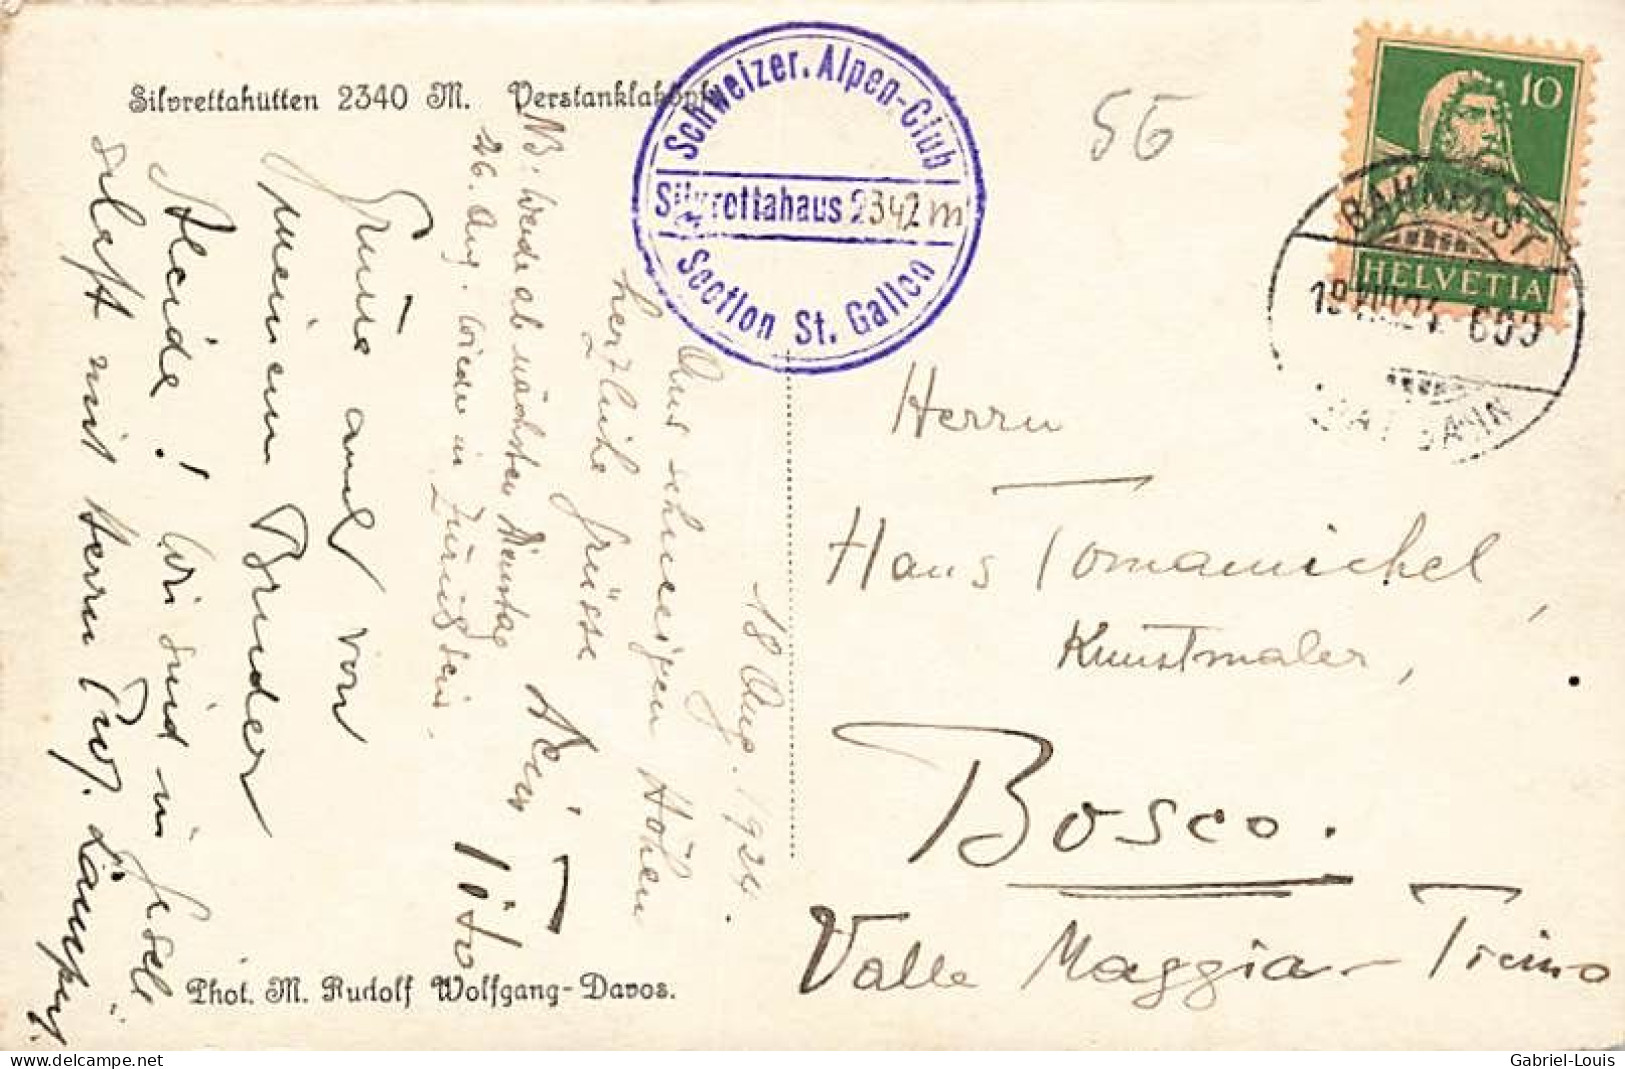 Silvrettahütten 2340 M. Verstanklaköpfe
Schweizer. Alpen-Club
Silvrettahaus 2342 m
Section St. Gallen
56
10
HELVETIA
BAHNPOST
19.VIII.24 609
18 Aug. 1924.
Aus schneeigen Höhen
herzliche Grüsse
Dein
Otto
NB: Werde ab nächsten Dienstag
26. Aug. wieder in Zürich sein.
Grüsse auch von
meinem Bruder
! Wir sind in Gesell-
schaft mit Herrn Prof.
Herrn
Hans Tomamichel,
Kunstmaler,
Bosco.
Valle Maggia - Ticino
Phot. M. Rudolf Wolfgang-Davos.
delcampe.net
Gabriel-Louis